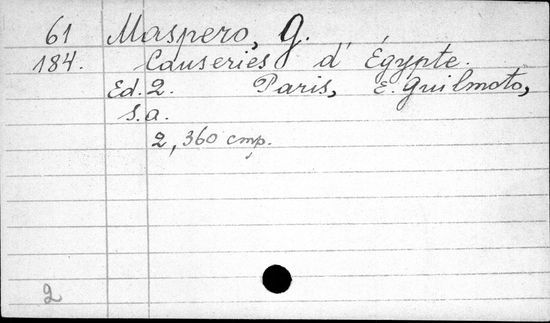 61 Maspero, G.
184. Causeries d'Égypte.
Ed. 2. Paris, E. Guilmoto,
s.a.
2, 360 cmp.
2